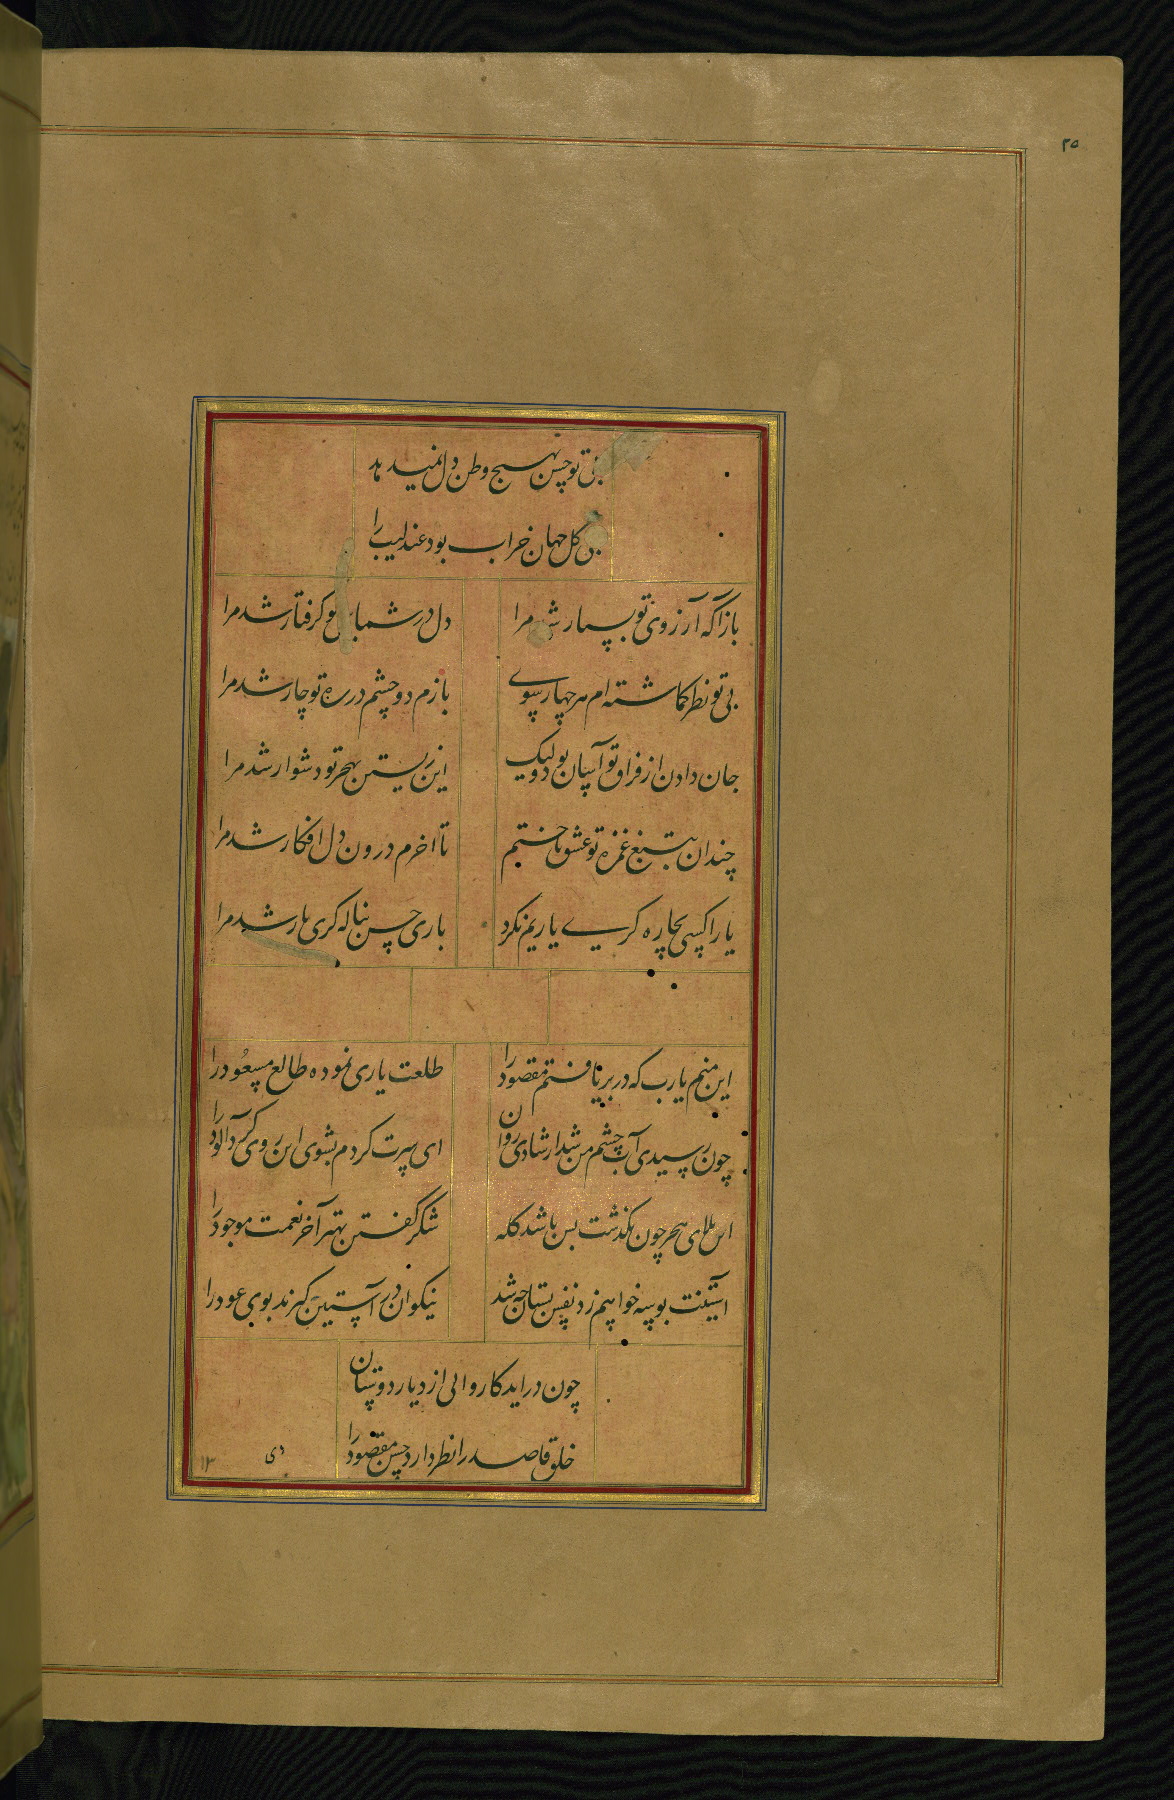 ۳۵
بی تو حسن بهیچ وطن دل نمیدهد
بی گل جهان خراب بود عندلیب را
بازآ که آرزوی تو بیمار شد مرا
دل در شمایل تو گرفتار شد مرا
بی تو نظر گماشته ام هر چهار سوی
بازم دو چشم در ره تو چار شد مرا
جان دادن از فراق تو آسان بود ولیک
این زیستن بهجر تو دشوار شد مرا
چندان بتیغ غمزه تو عشق باختم
تا اخرم درون دل افکار شد مرا
یارا کسی بچاره گری یاریم نکرد
باری حسن بناله گری یار شد مرا
این منم یارب که در بر یافتم مقصود را
طلعت یاری نموده طالع مسعود را
چون رسیدی آب چشم من شد از شادی روان
ای سرت کردم بشوی این روی گرد آلود را
این بلای هجر چون بگذشت بس باشد گله
شکر گفتن بهتر آخر نعمت موجود را
آستینت بوسه خواهیم زد نفس بستان چه شد
نیکوان در آستین گیرند بوی عود را
چون دراید کاروانی از دیار دوستان
خلق قاصد را نظر دارد حسن مقصود را
دی
۱۳